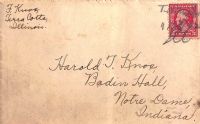 F. Knox,
Terra Cotta,
Illinois.
Harold T. Knox
Badin Hall,
Notre Dame,
Indiana.